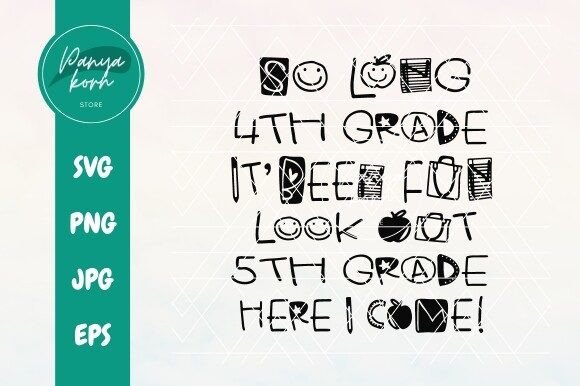 Panya
korn
STORE
SVG
PNG
JPG
EPS
SO LONG
4TH GRADE
IT'BEEN FUN
LOOK OUT
5TH GRADE
HERE I COME!